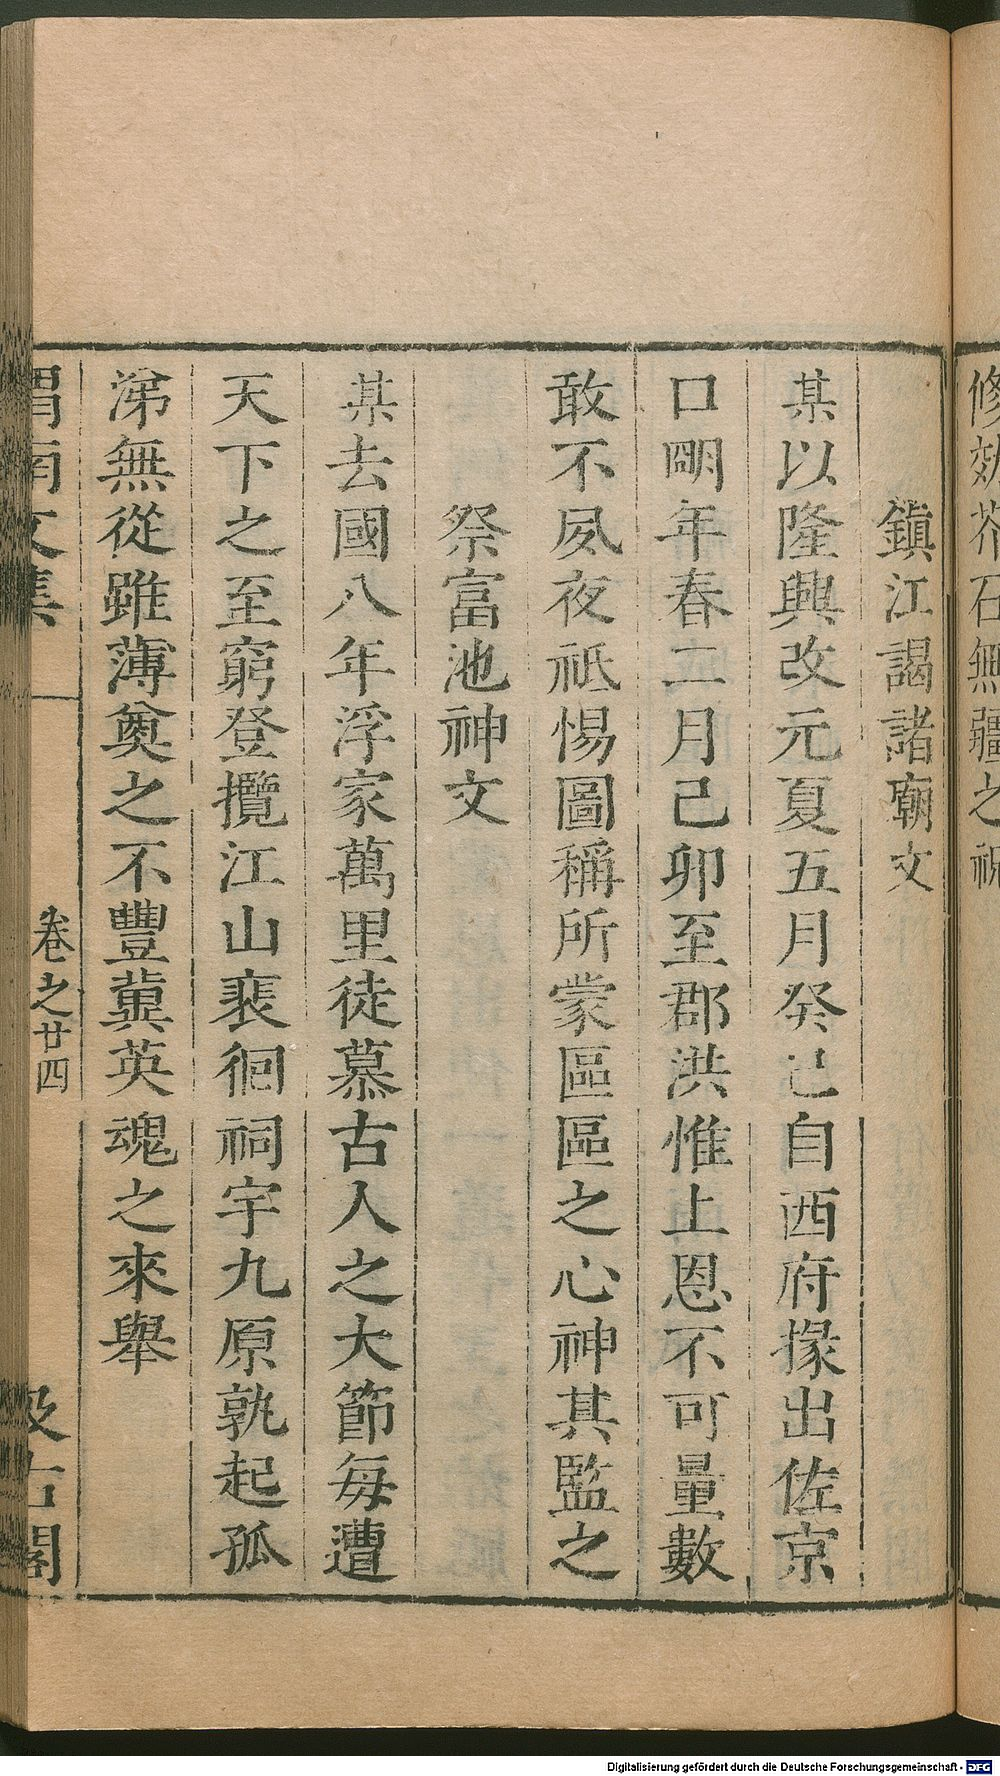 修
石無疆之祝
鎮江謁諸廟文
某以隆興改元夏五月癸巳自西府掾出佐京
口朙年春二月己卯至郡洪惟上恩不可量數
敢不夙夜祗惕圖稱所蒙區區之心神其監之
祭富池神文
某去國八年浮家萬里徒慕古人之大節每遭
天下之至窮登攬江山裴徊祠宇九原孰起孤
涕無從雖薄奠之不豐冀英魂之來舉
渭南文集
卷之廿四
汲古閣
Digitalisierung gefördert durch die Deutsche Forschungsgemeinschaft - DFG